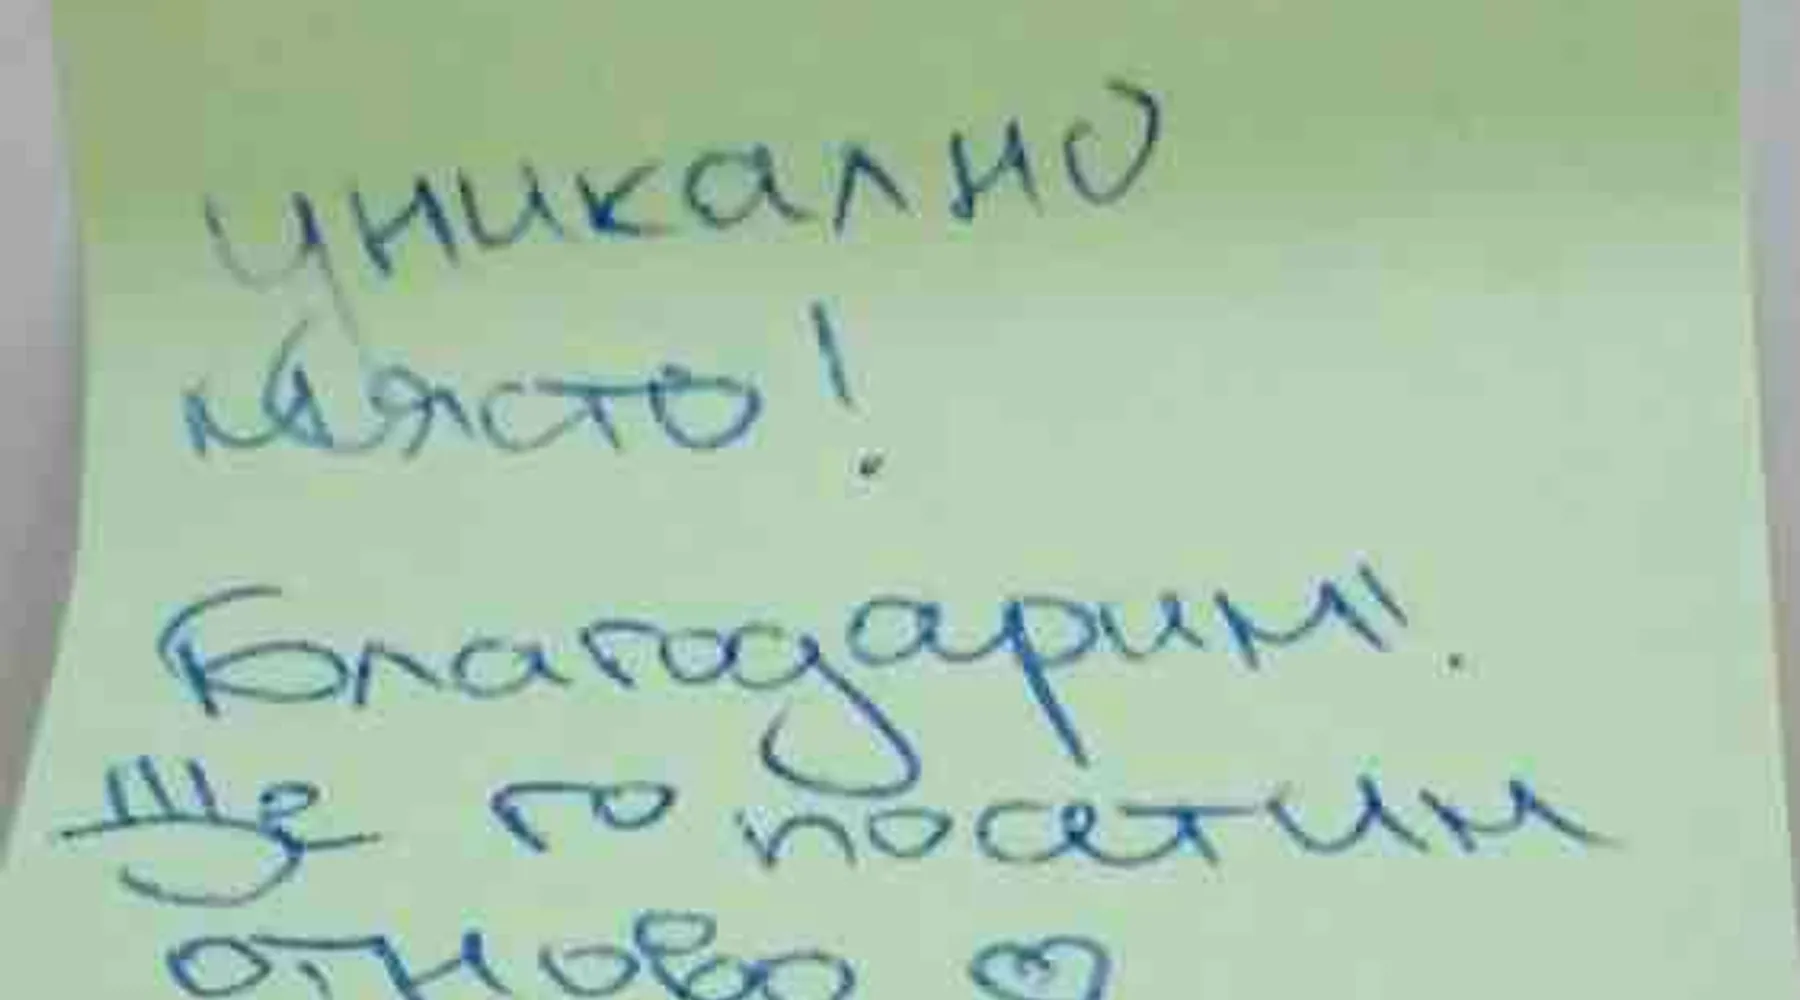 уникално
място!
Благодарим!
Ще го посетим
отново ♡